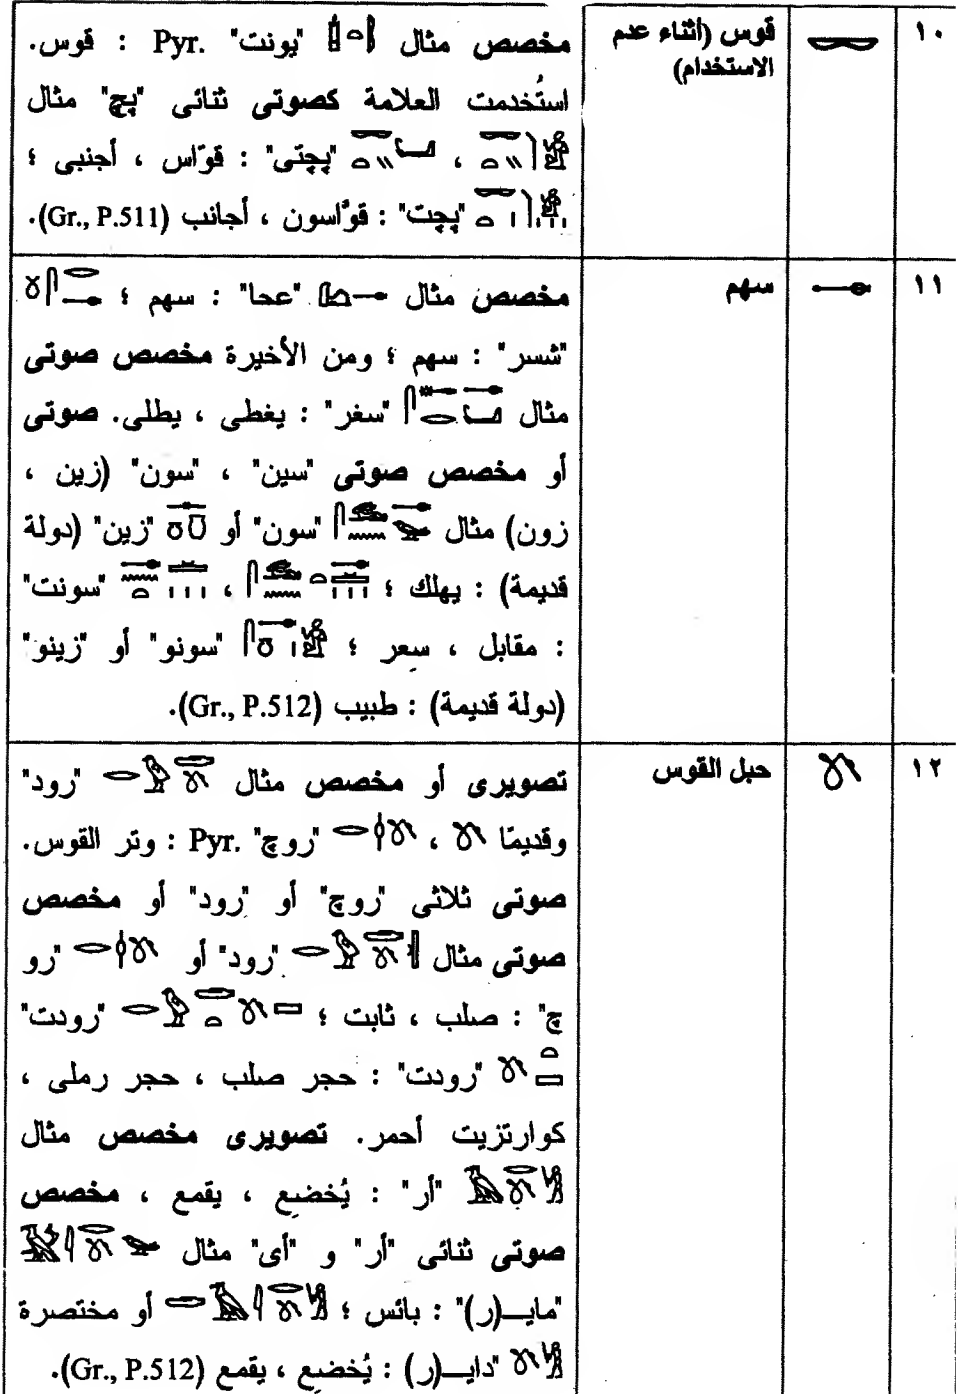 ١٠ قوس (أثناء عدم مخصص مثال "يونت" Pyr. : قوس.
الاستخدام) استُخدمت العلامة كصوتى ثنائى "پچ" مثال
، "پچتى" : قوّاس ، أجنبى ؛
"پچت" : قوَّاسون ، أجانب (Gr., P.511).
١١ سهم مخصص مثال "عحا" : سهم ؛
"شسر" : سهم ؛ ومن الأخيرة مخصص صوتى
مثال "سغر" : يغطى ، يطلى. صوتى
أو مخصص صوتى "سين" ، "سون" (زين ،
زون) مثال "سون" أو "زين" (دولة
قديمة) : يهلك ؛ ، "سونت"
: مقابل ، سعر ؛ "سونو" أو "زينو"
(دولة قديمة) : طبيب (Gr., P.512).
١٢ حبل القوس تصويرى أو مخصص مثال "رود"
وقديمًا ، "روچ" Pyr. : وتر القوس.
صوتى ثلاثى "روچ" أو "رود" أو مخصص
صوتى مثال "رود" أو "رو
چ" : صلب ، ثابت ؛ "رودت"
"رودت" : حجر صلب ، حجر رملى ،
كوارتزيت أحمر. تصويرى مخصص مثال
"أر" : يُخضع ، يقمع ، مخصص
صوتى ثنائى "أر" و "أى" مثال
"مايـــ(ر)" : بائس ؛ أو مختصرة
"دايـــ(ر) : يُخضع ، يقمع (Gr., P.512).